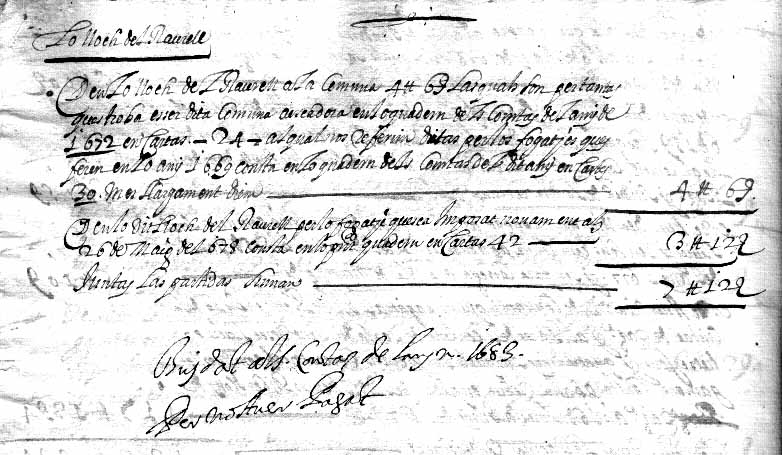 Lo lloch del Raurell
Deu Lo lloch de L Raurell a La Comuna 4 ll 6 9 Lasquals son per tantas
ques troba esser dita Comuna acreadora en lo quadern dels Comtas de Lany de
1672 en Cartas - 24 - al qual nos referim ditas per los fogatjes ques
feren en Lo any 1669 consta en Lo quadern dels Comtas de L dit any en Cartas
30 mes llargament diem 4 ll 6 9
Deu lo dit lloch del Raurell per lo fogatje ques ca Imposat novament als
26 de Maig del 678 consta en lo pnt quadern en Cartas 42 3 ll 12 9
Juntas Las partidas suman 7 ll 12 9
Buydat als Comtas de Lany 1683.
Per no haver Pagat